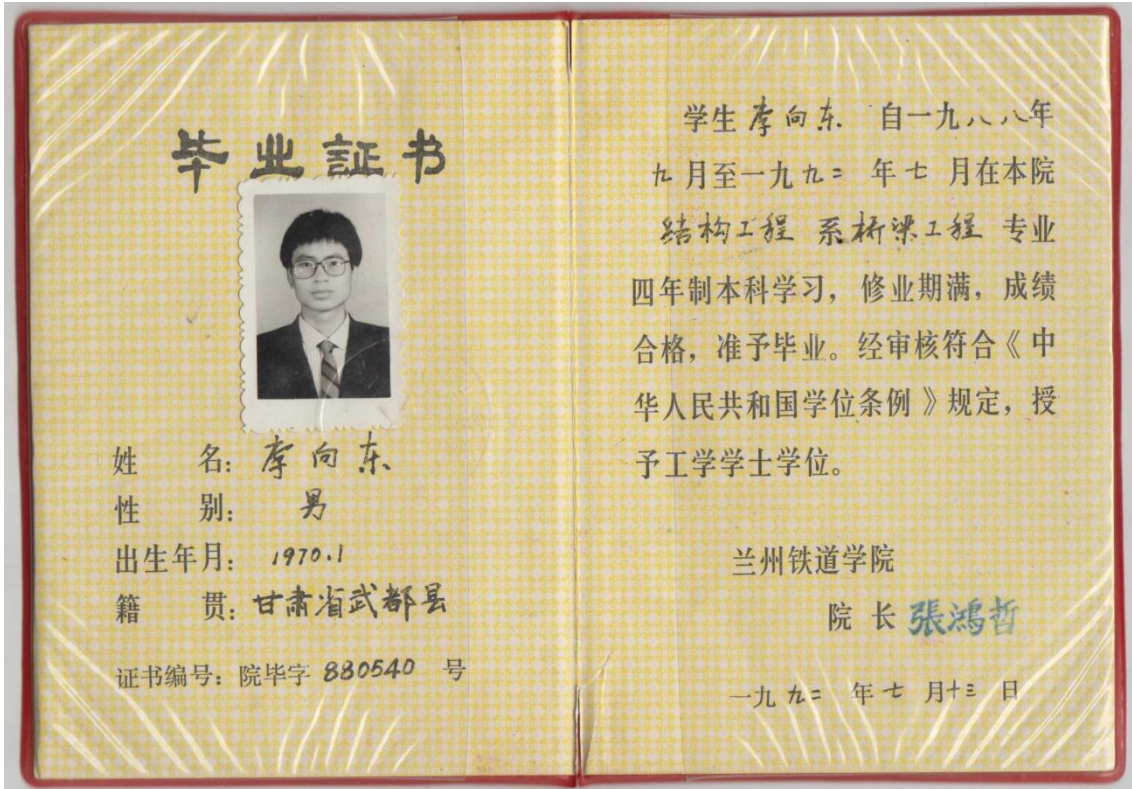 毕业証书
姓 名：李向东
性 别：男
出生年月：1970.1
籍 贯：甘肃省武都县
证书编号：院毕字 880540 号
学生李向东 自一九八八年
九月至一九九二 年七 月在本院
结构工程 系桥梁工程 专业
四年制本科学习，修业期满，成绩
合格，准予毕业。经审核符合《中
华人民共和国学位条例》规定，授
予工学学士学位。
兰州铁道学院
院 长 張鴻哲
一九九二 年七 月十三 日